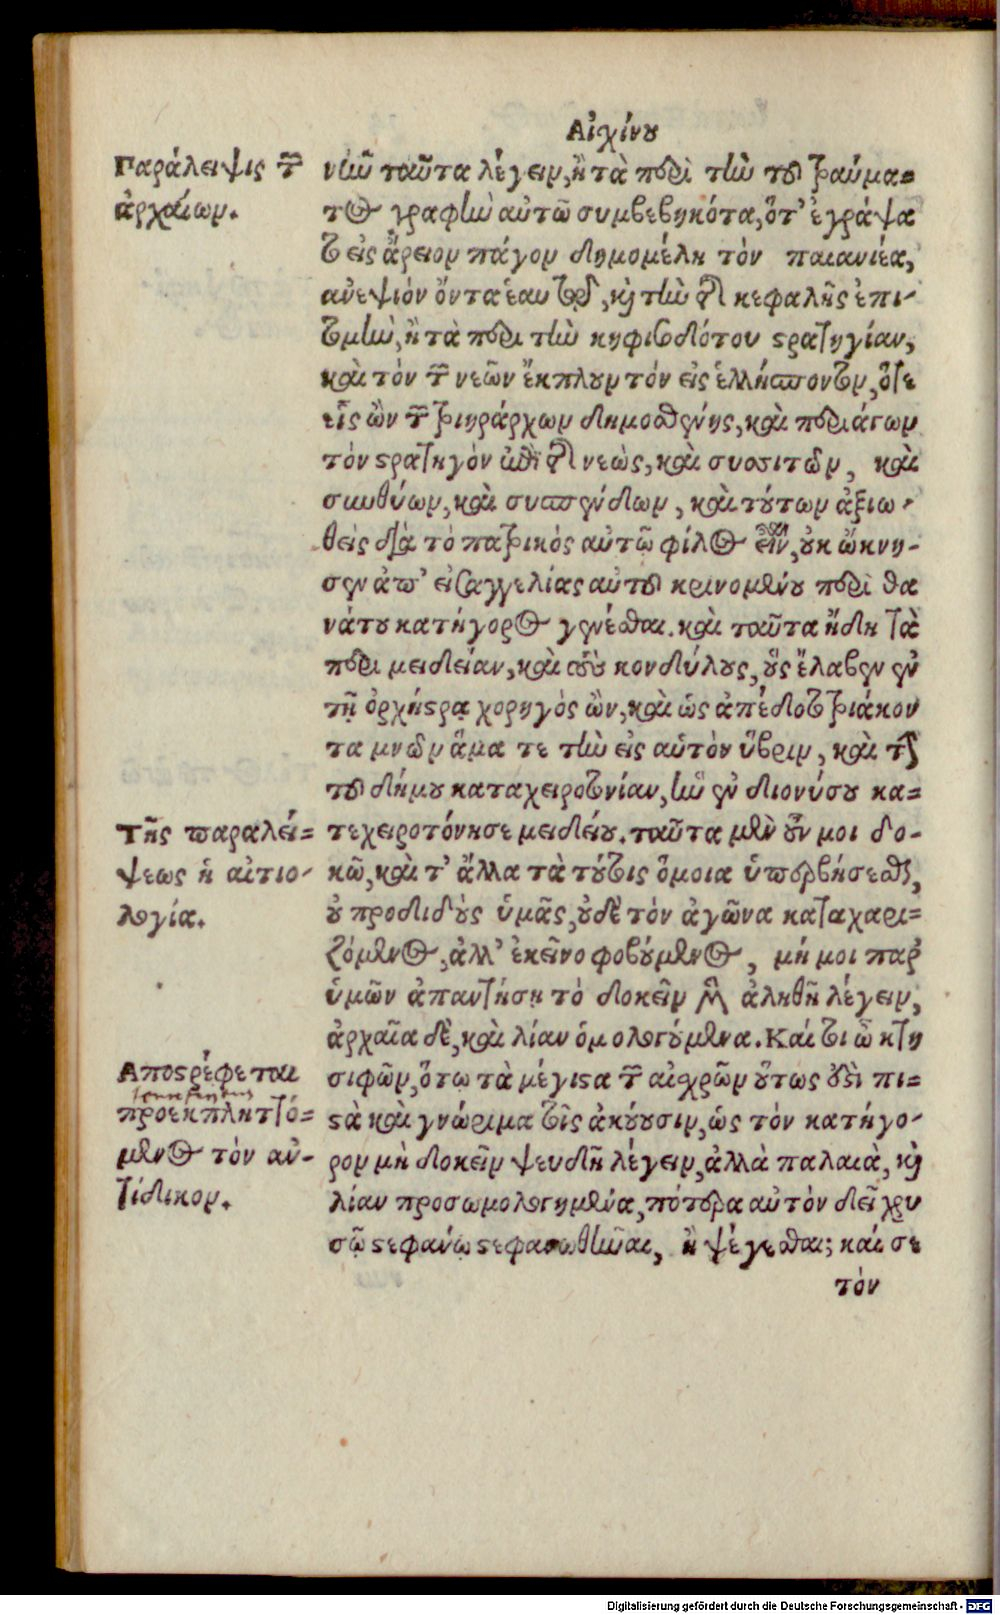 Αἰχίνου
Παράλειψις τῶν
ἀρχαίων.
νῦν ταῦτα λέγειν, ἢ τὰ περὶ τὴν τοῦ τραύμα=
τος γραφὴν αὐτῷ συμβεβηκότα, ὅτ' ἐγράψα
το εἰς ἄρειον πάγον δημομέλη τὸν παιανιέα,
ἀνεψιὸν ὄντα ἑαυτοῦ, καὶ τὴν τῆς κεφαλῆς ἐπι-
τομὴν, ἢ τὰ περὶ τὴν κηφισοδότου στρατηγίαν,
καὶ τὸν τῶν νεῶν ἔκπλουν τὸν εἰς ἑλλήσποντον, ὅτε
εἷς ὢν τῶν τριηράρχων δημοσθένης, καὶ περιάγων
τὸν στρατηγὸν ἐπὶ τῆς νεὼς, καὶ συσσιτῶν, καὶ
συνθύων, καὶ συσπένδων, καὶ τούτων ἀξιω-
θεὶς διὰ τὸ πατρικὸς αὐτῷ φίλος εἶναι, οὐκ ὤκνη-
σεν ἀπ' εἰσαγγελίας αὐτοῦ κρινομένου περὶ θα
νάτου κατήγορος γενέσθαι. καὶ ταῦτα ἤδη τὰ
περὶ μειδείαν, καὶ τοὺς κονδύλους, οὓς ἔλαβεν ἐν
τῇ ὀρχήστρᾳ χορηγὸς ὢν, καὶ ὡς ἀπέδοτο τριάκον
τα μνῶν ἅμα τε τὴν εἰς αὑτὸν ὕβριν, καὶ τὴν
τοῦ δήμου καταχειροτονίαν, ἣν ἐν διονύσου κα=
Τῆς παραλεί=
ψεως ἡ αἰτιο-
λογία.
τεχειροτόνησε μειδίου. ταῦτα μὲν οὖν μοι δο-
κῶ, καὶ τ' ἄλλα τὰ τούτοις ὅμοια ὑπερβήσεσθαι,
οὐ προδιδοὺς ὑμᾶς, οὐδὲ τὸν ἀγῶνα καταχαρι=
ζόμενος, ἀλλ' ἐκεῖνο φοβούμενος, μή μοι παρ'
ὑμῶν ἀπαντήσῃ τὸ δοκεῖν μὲν ἀληθῆ λέγειν,
ἀρχαῖα δὲ, καὶ λίαν ὁμολογούμενα. Καίτοι ὦ κτη
Αποστρέφεται
προεκπληττό=
μενος τὸν ἀν-
τίδικον.
σιφῶν, ὅτῳ τὰ μέγιστα τῶν αἰσχρῶν οὕτως ἐστὶ πι=
στὰ καὶ γνώριμα τοῖς ἀκούουσιν, ὡς τὸν κατήγο-
ρον μὴ δοκεῖν ψευδῆ λέγειν, ἀλλὰ παλαιὰ, καὶ
λίαν προσωμολογημένα, πότερα αὐτὸν δεῖ χρυ
σῷ στεφάνῳ στεφανωθῆναι, ἢ ψέγεσθαι; καί σε
τόν
Digitalisierung gefördert durch die Deutsche Forschungsgemeinschaft - DFG